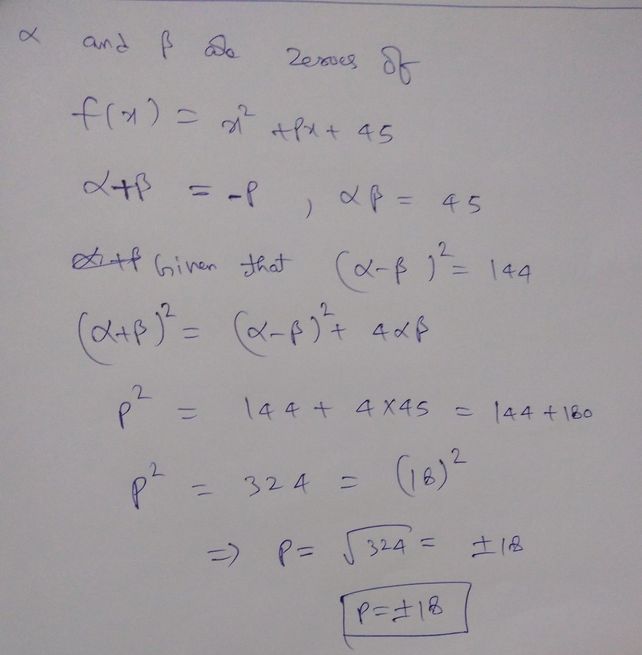 α and β are zeroes of
f(x) = x² + px + 45
α+β = -p , αβ = 45
Given that (α-β)² = 144
(α+β)² = (α-β)² + 4αβ
p² = 144 + 4×45 = 144 + 180
p² = 324 = (18)²
⇒ p = √324 = ±18
p = ±18